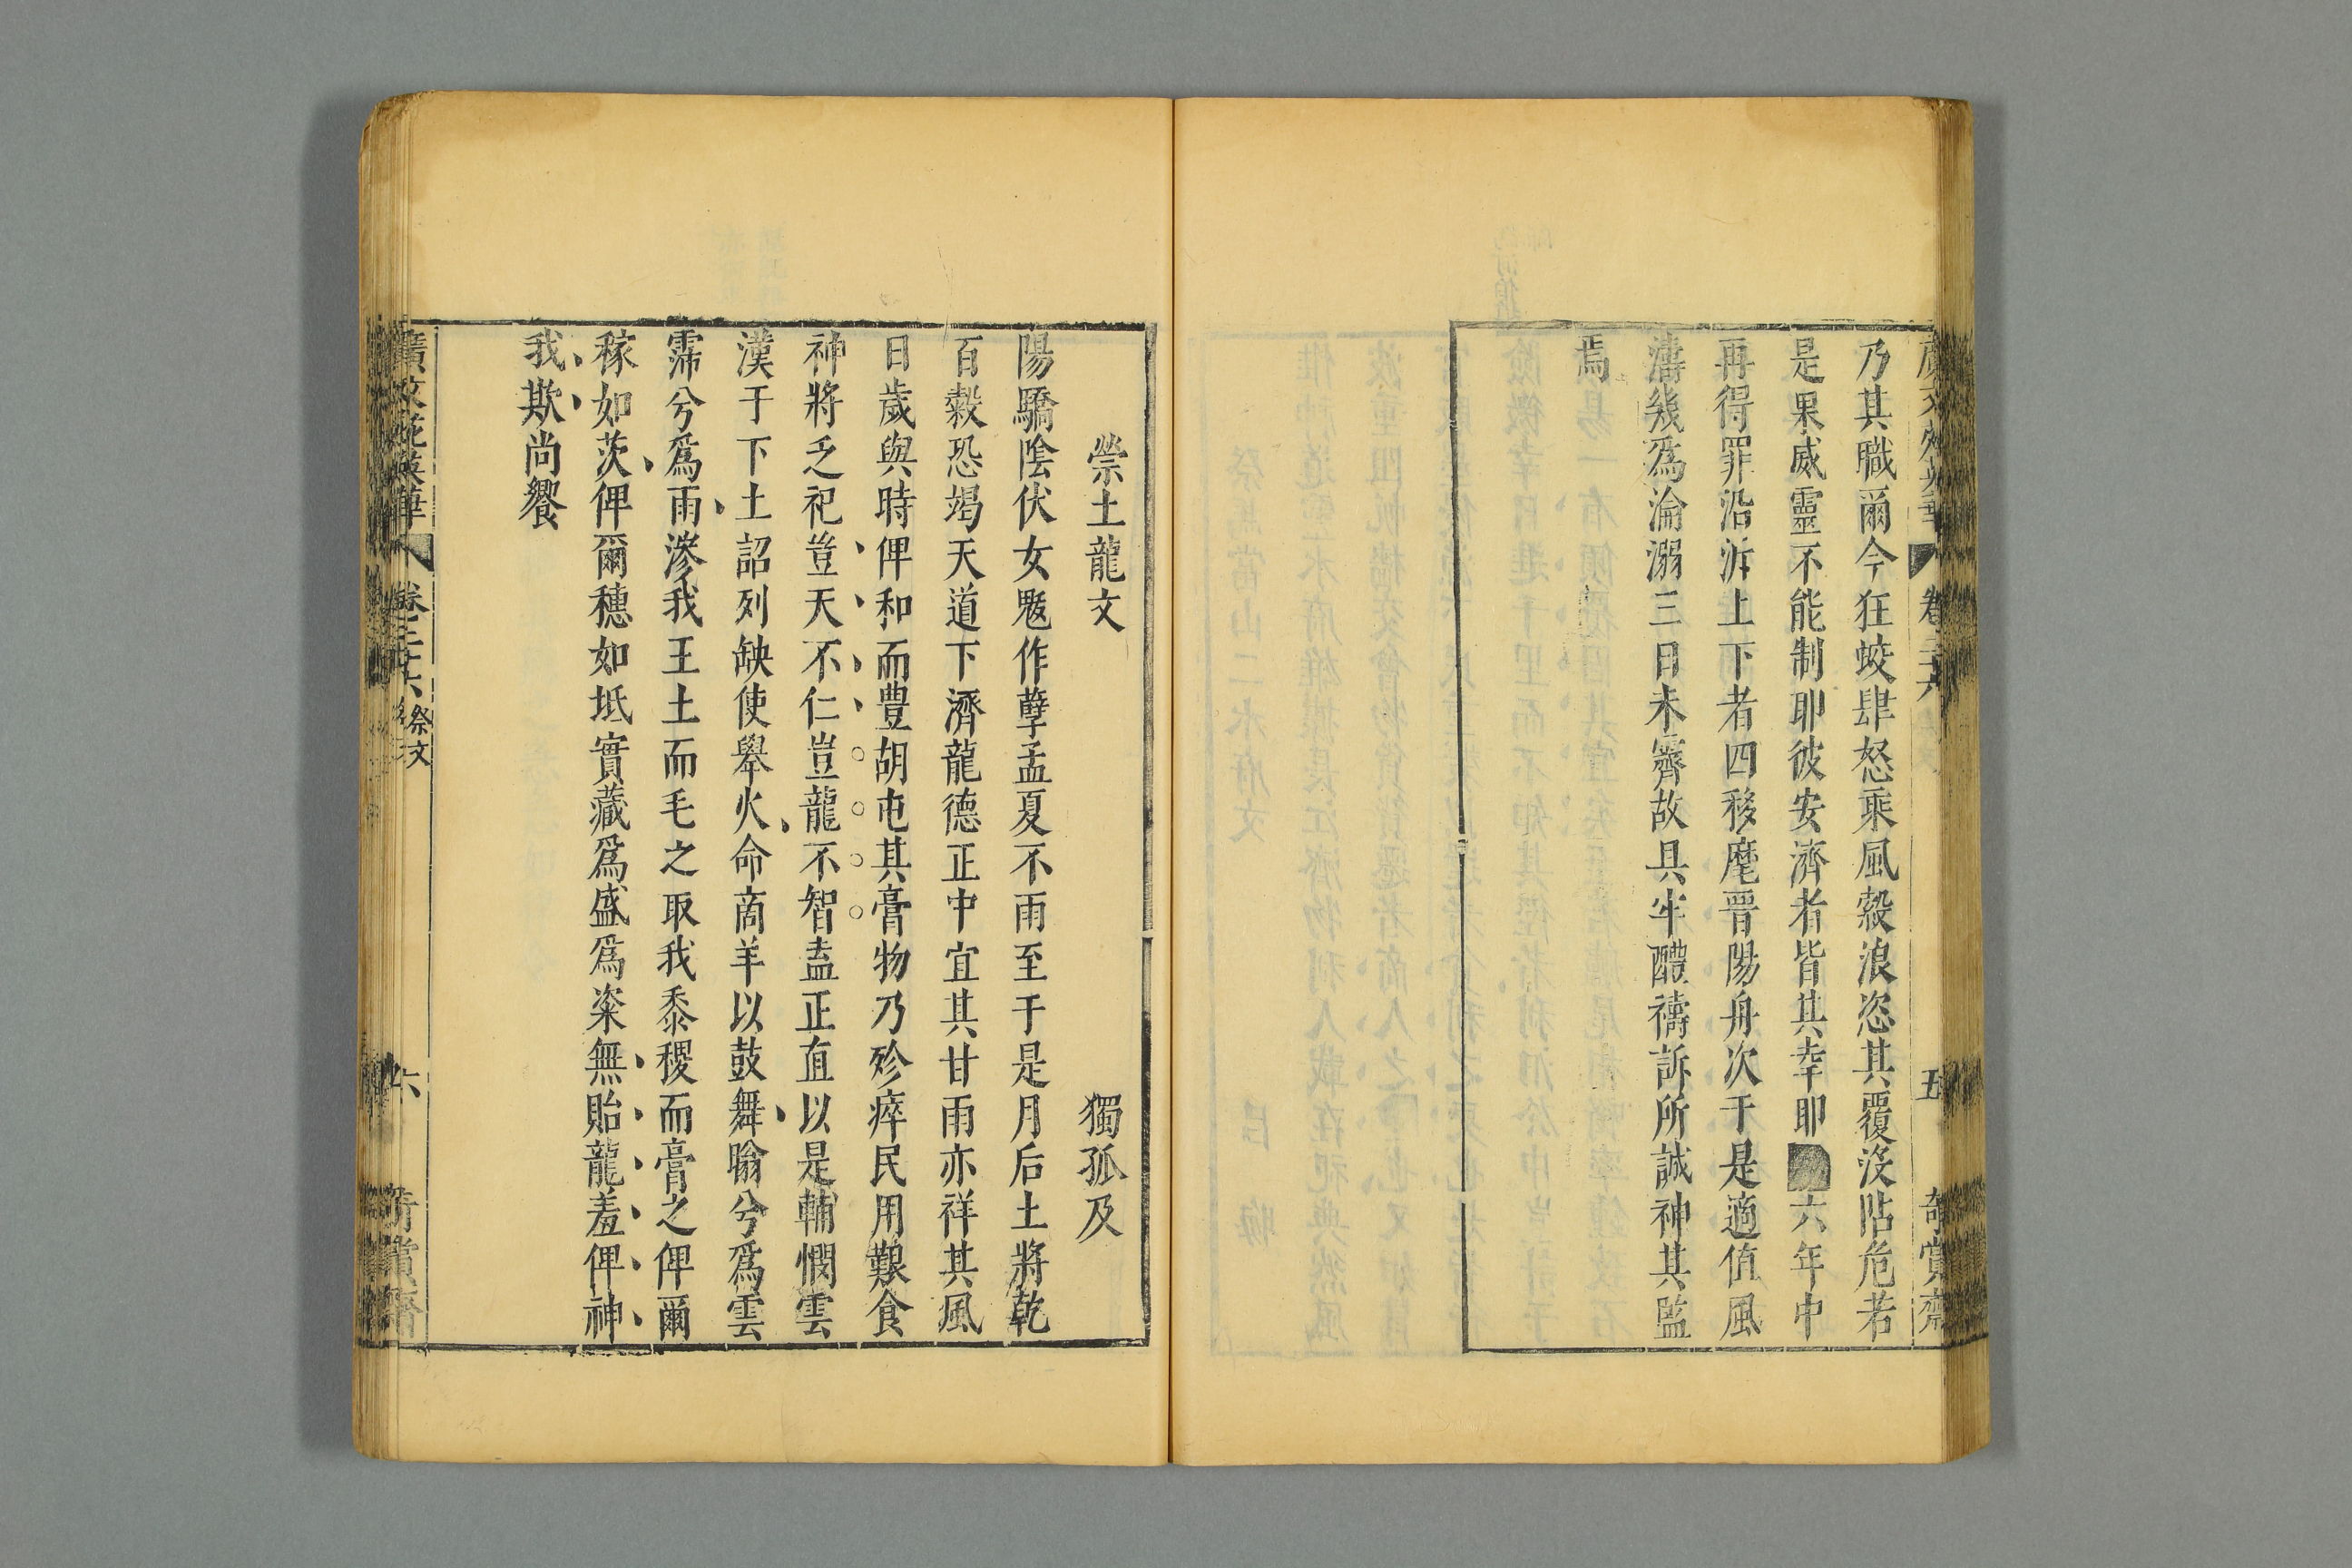 乃其職爾今狂蛟肆怒乘風縠浪恣其覆沒阽危若
是果威靈不能制耶彼安濟者皆其幸耶六年中
再得罪沿泝上下者四移麾晉陽舟次于是適值風
濤幾為淪溺三日未霽故具牢醴禱訴所誠神其監
焉
卷二十六
五
奇賞齋
禜土龍文
獨孤及
陽驕陰伏女魃作孽孟夏不雨至于是月后土將乾
百穀恐竭天道下濟龍德正中宜其甘雨亦祥其風
日歲與時俾和而豊胡屯其膏物乃殄瘁民用艱食
神將乏祀豈天不仁豈龍不智盍正直以是輔憫雲
漢于下土詔列缺使舉火命啇羊以鼓舞暡兮爲雲
霈兮爲雨滲我王土而毛之取我黍稷而膏之俾爾
稼如茨俾爾穗如坻實藏爲盛爲粢無貽龍羞俾神
我欺尚饗
廣文苑英華
卷二十六
祭文
六
奇賞齋